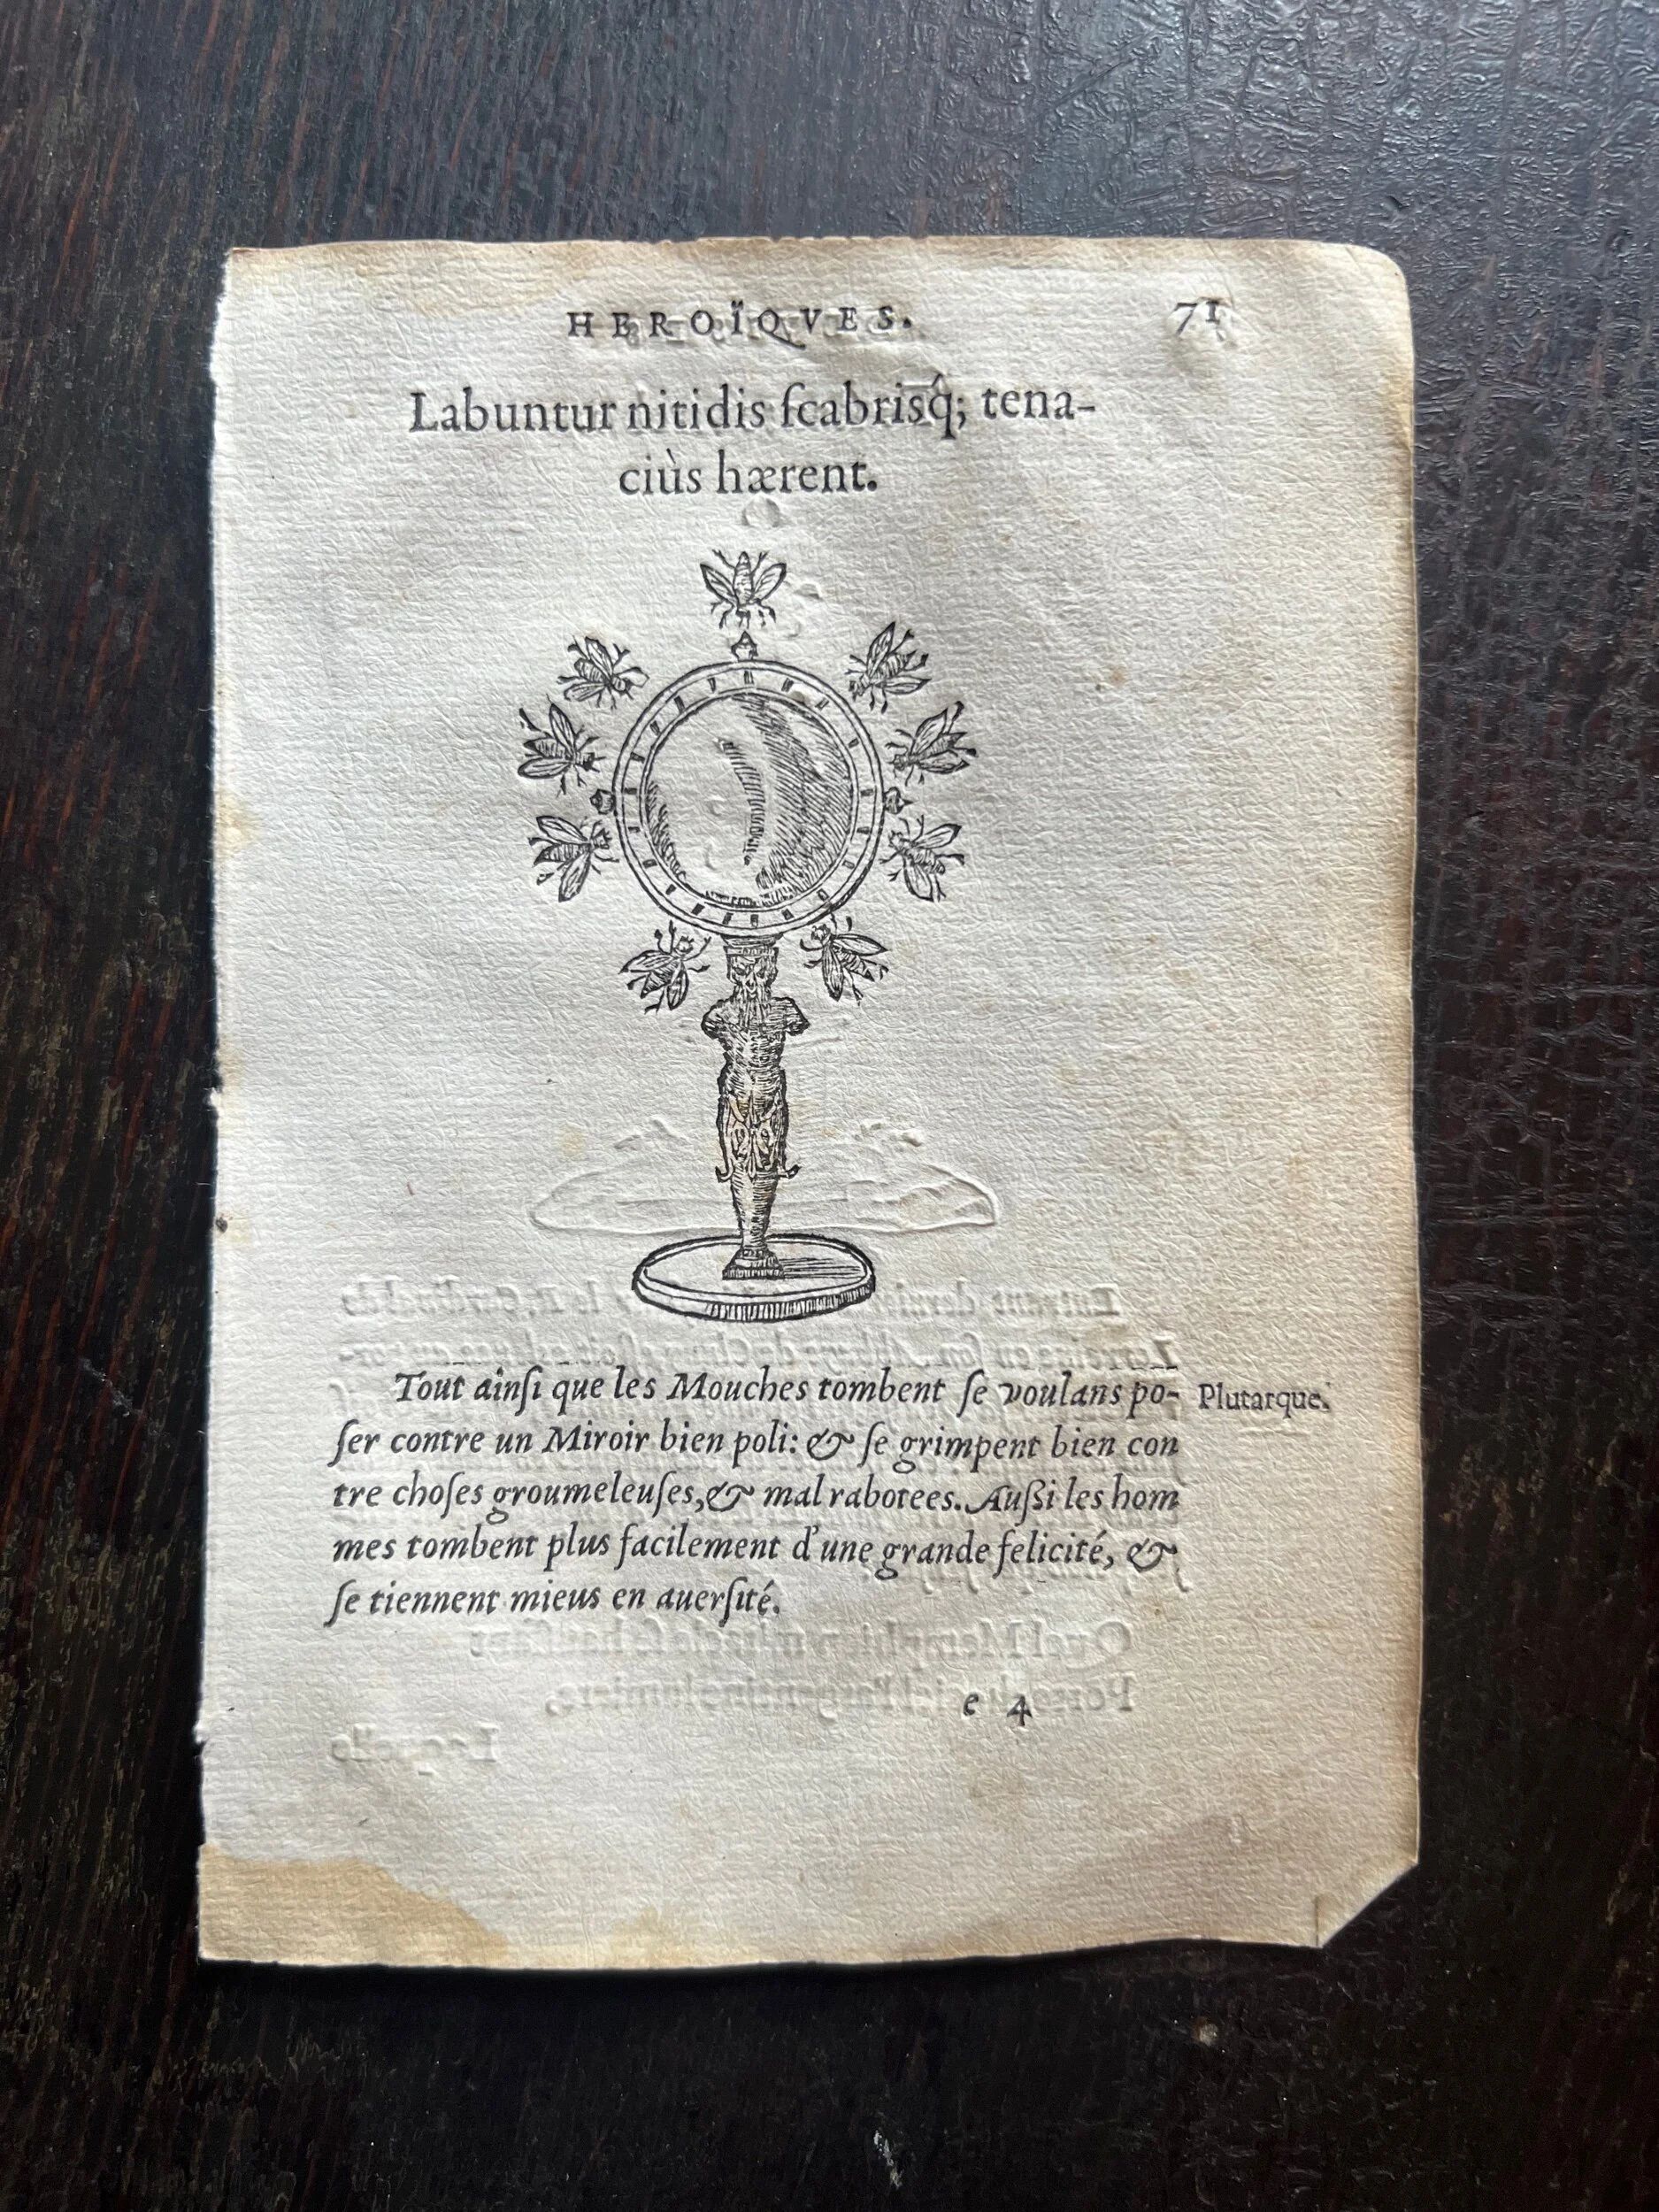 HEROÏQVES. 71
Labuntur nitidis ſcabrisq́; tena-
ciùs hærent.
Tout ainſi que les Mouches tombent ſe voulans po- Plutarque.
ſer contre un Miroir bien poli: & ſe grimpent bien con
tre choſes groumeleuſes, & mal rabotees. Außi les hom
mes tombent plus facilement d'une grande felicité, &
ſe tiennent mieus en auerſité.
e 4